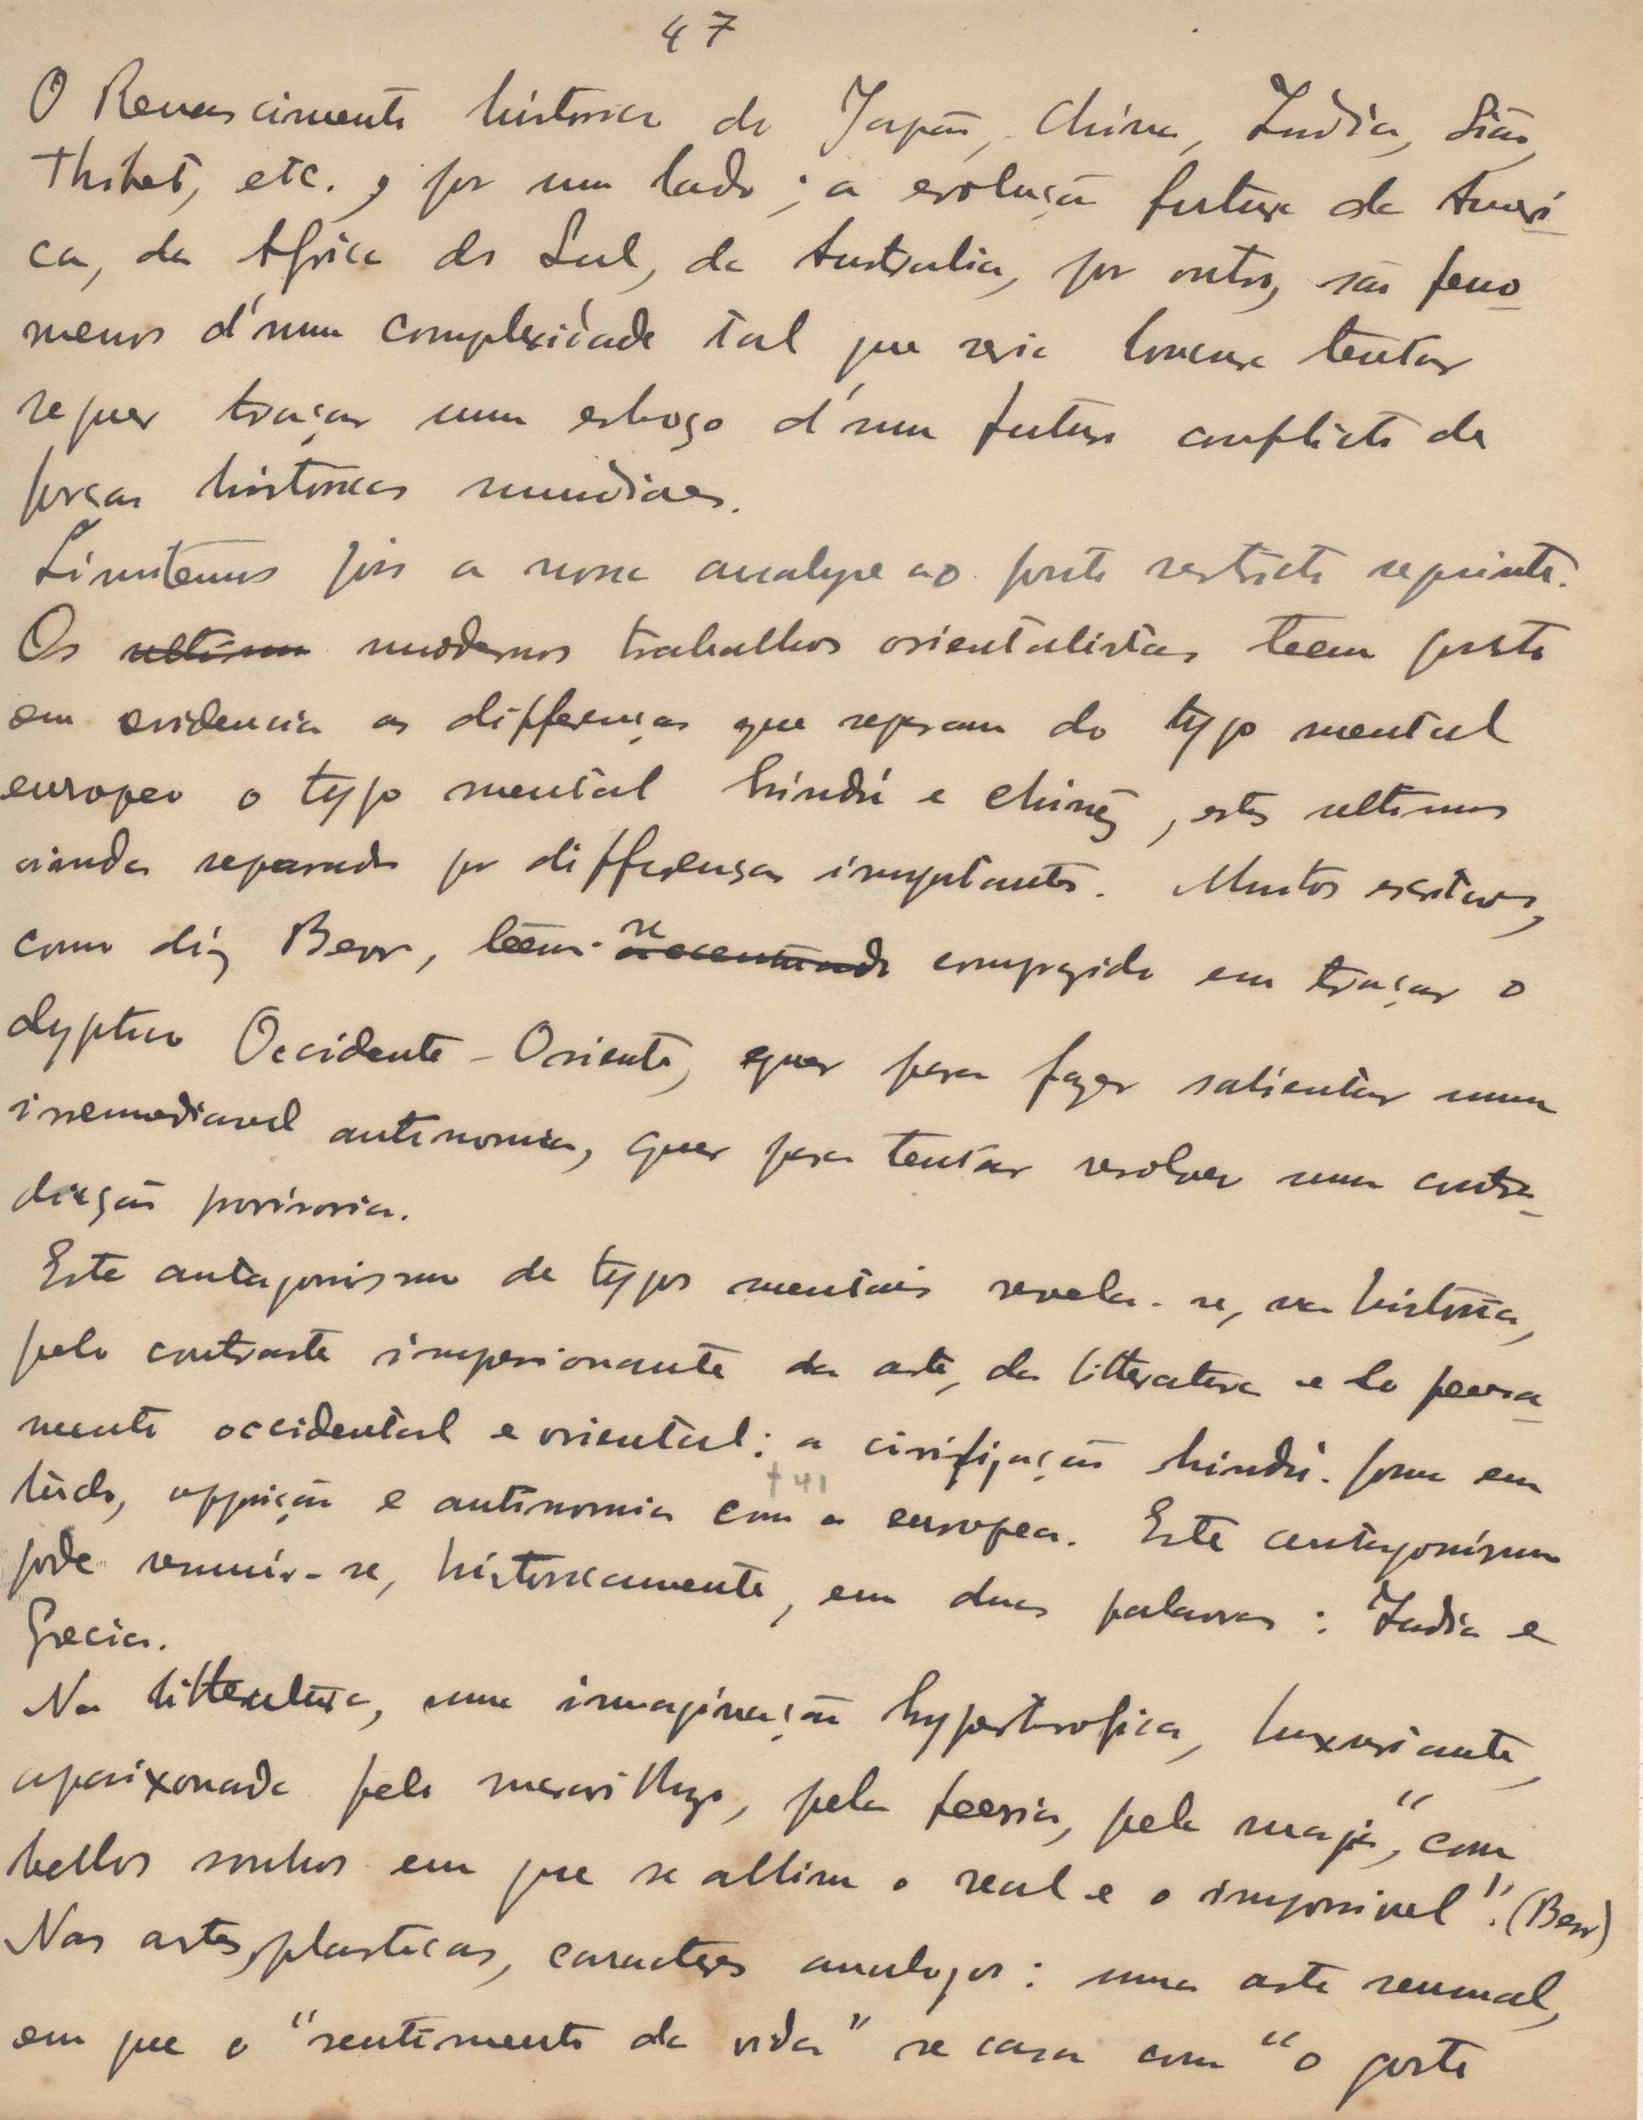 47
O Renascimento historico do Japão, China, India, Sião,
Thibet, etc., por um lado; a evolução futura da Ameri-
ca, da Africa do Sul, da Australia, por outro, são feno-
menos d'uma complexidade tal que seria loucura tentar
sequer traçar um esboço d'um futuro conflicto de
forças historicas mundiaes.
Limitemos pois a nossa analyse ao ponto restricto seguinte.
Os ultimos modernos trabalhos orientalistas teem posto
em evidencia as differenças que separam do typo mental
europeu o typo mental hindú e chinêz, estes ultimos
ainda separados por differenças importantes. Muitos escritores,
como diz Berr, teem-se accentuado comprazido em traçar o
dyptico Occidente-Oriente, quer para fazer salientar uma
irremediavel antinomia, quer para tentar resolver uma contra-
dicção provisoria.
Este antagonismo de typos mentais revela-se, na historia,
pelo contraste impressionante da arte, da litteratura e do pensa-
mento occidental e oriental: a civilização hindú forma em
tudo, opposição e antinomia com a europea. Este antagonismo
†41
pode resumir-se, historicamente, em duas palavras: India e
Grecia.
Na litteratura, uma imaginação hypertrofica, luxuriante,
apaixonada pelo maravilhoso, pela feeria, pela magia, "com
bellos sonhos em que se alliam o real e o impossivel". (Berr)
Nas artes plasticas, caracteres analogos: uma arte sensual,
em que o "sentimento da vida" se casa com "o gosto